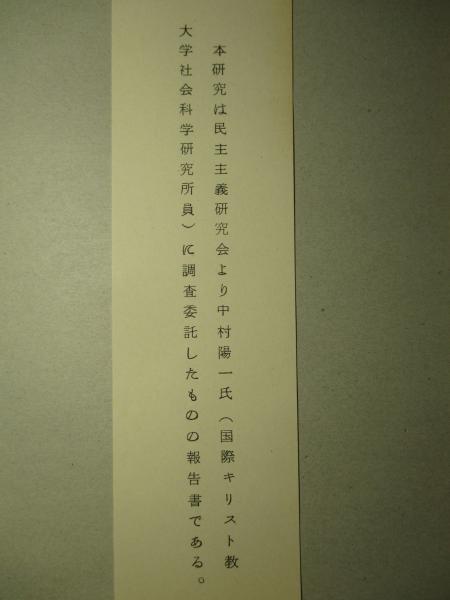 本研究は民主主義研究会より中村陽一氏（国際キリスト教
大学社会科学研究所員）に調査委託したものの報告書である。